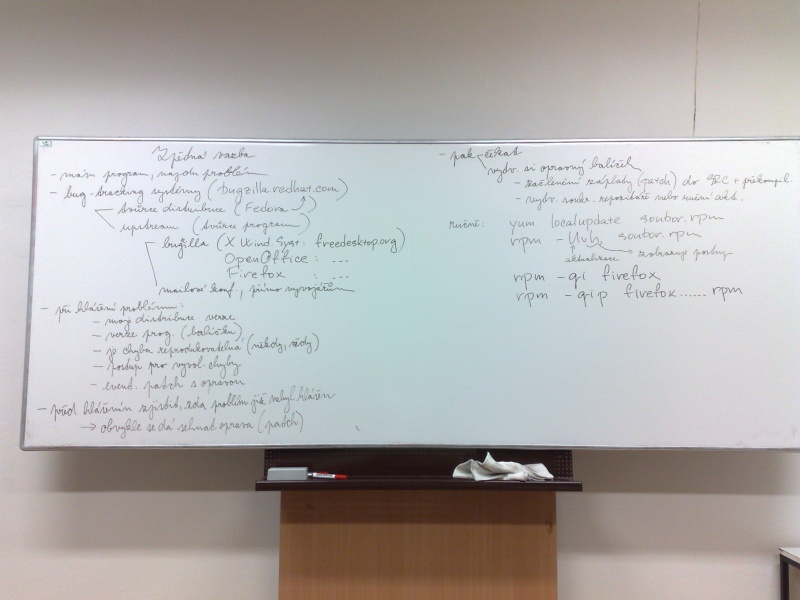 Zpětná vazba
- mám program, najdu problém
- bug-tracking systémy (bugzilla.redhat.com)
tvůrce distribuce (Fedora)
upstream (tvůrce programu)
bugzilla (X Wind. Syst.: freedesktop.org)
OpenOffice : ...
Firefox : ...
mailové konf., přímo vývojářům
- při hlášení problému:
- moje distribuce verze
- verze prog. (balíčku)
- je chyba reprodukovatelná (někdy, vždy)
- postup pro vyvol. chyby
- event. patch s opravou
- před hlášením zjistit, zda problém již nebyl hlášen
→ obvykle se dá sehnat oprava (patch)
- pak čekat
vytv. si opravný balíček
- začlenění záplaty (patch) do SRC + překompil.
- vytv. soukr. repozitáře nebo ruční akt.
ručně: yum localupdate soubor.rpm
rpm -Uvh soubor.rpm
aktualizace zobrazuje postup
rpm -qi firefox
rpm -qip firefox...... rpm